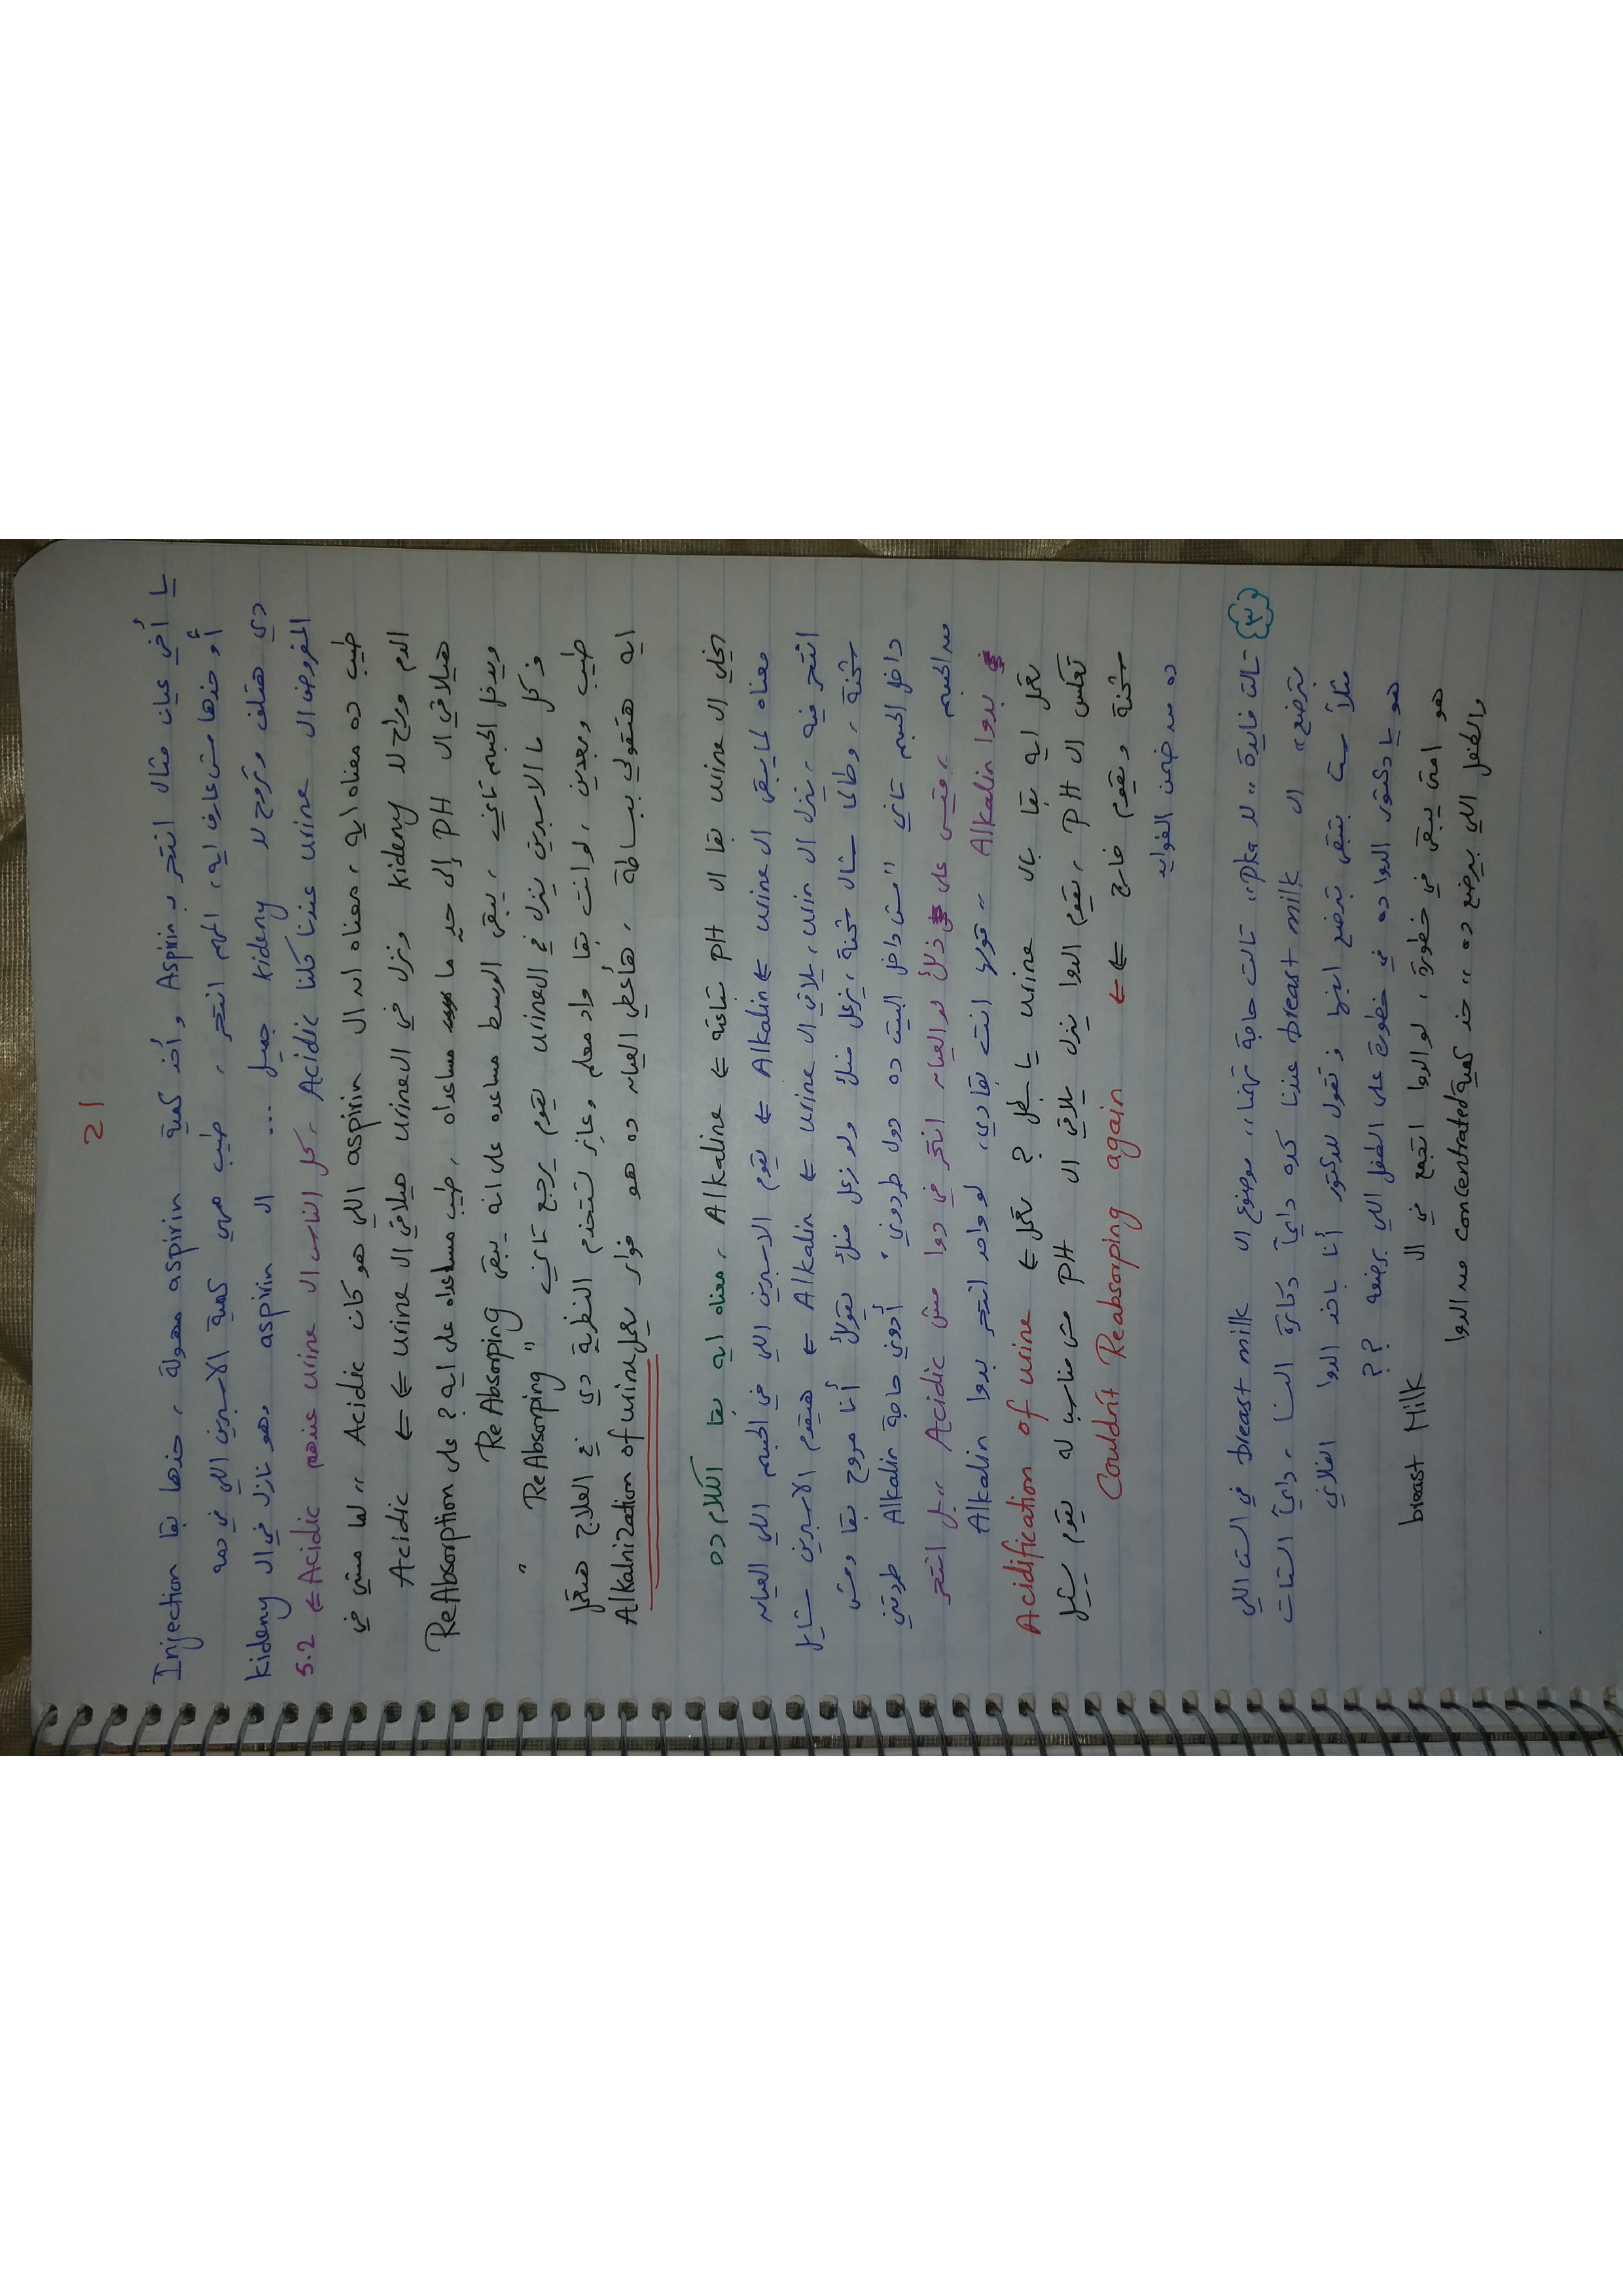 21
يا أخي عيان مثال انتحر بـ Aspirin وأخد كمية aspirin مهولة ، خدها بقا Injection
أو خدها مش عارف ايه، المهم انتحر ، طيب مهي كمية الاسبرين اللي في دمه
دي هتلف وتروح للـ kideny جميل ... الـ aspirin وهو نازل في الـ kideny
المفروض الـ urine عندنا كلنا Acidic ، كل الناس الـ urine عندهم Acidic ← 5.2
طيب ده معناه ايه ، معناه ان الـ aspirin اللي هو كان Acidic ,, لما مشي في
الدم وراح للـ kideny ونزل في الـ urine هيلاقي الـ urine ← ← Acidic
هيلاقي الـ PH إلى حدٍ ما مساعداه ، طيب مساعداه على ايه ? على ReAbsorption
ويدخل الجسم تاني ، يبقى الوسط مساعده على انه يبقى ReAbsorping
فـ كل ما الاسبرين ينزل في الـ urine يقوم يرجع تاني " ReAbsorping "
طيب وبعدين ، لو انت بقا واد معلم وعايز تستخدم النظرية دي في العلاج هتعمل
ايه هتقولي ببساطة ، هأعطي العيان ده هو فوار يعمل Alkalnization of urine
يخلي الـ urine بقا الـ PH بتاعته ← Alkaline ، معناه ايه بقا الكلام ده
معناه لما يبقى الـ urine ← Alkalin ← يقوم الاسبرين اللي في الجسم اللي العيان
انتحر فيه ، ينزل الـ urin ، يلاقي الـ urine ← Alkalin ← هيقوم الاسبرين شايل
شحنة ، وطالما شال شحنة ، يزعل منك ولو زعل منك يقولك أنا مروح بقا ومش
داخل الجسم تاني "مش داخل البيت ده دول طردوني" أدوني حاجة Alkalin طردتني
من الجسم ، وقيس على ذلك لو العيان انتحر في دوا مش Acidic ,, بل انتحر
بدوا Alkalin ,, قولها انت بقا دي، لو واحد انتحر بدوا Alkalin
تعمل ايه بقا بالـ urine يا بطل ? تعمل ← Acidification of urine
تعكس الـ PH ، يقوم الدوا ينزل يلاقي الـ PH مش مناسب له يقوم يشيل
شحنة ويقوم خارج ← ← Couldn't Reabsorping again
ده من ضمن الفوايد
٣ تالت فايدة ,, للـ pka ,, تالت حاجة تهمنا,, موضوع الـ breast milk في الست اللي
بترضع ,, الـ breast milk عندنا كده دايماً دكاترة النسا ، دايماً الستات
مثلاً ست بتبقى بترضع ابنها وتقول للدكتور أنا باخد الدوا الفلاني
هو يا دكتور الدوا ده في خطورة على الطفل اللي برضعه ??
هو امتى يبقى في خطورة ، لو الدوا اتجمع في الـ breast Milk
والطفل اللي بيرضع ده ,, خد كمية concentrated من الدوا